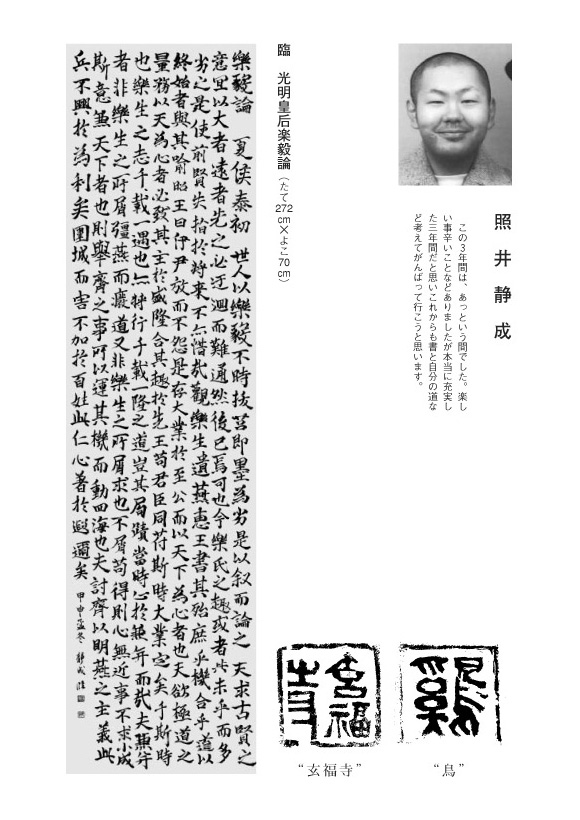 照井静成
この3年間は、あっという間でした。楽し
い事辛いことなどありましたが本当に充実し
た三年間だと思いこれからも書と自分の道な
ど考えてがんばって行こうと思います。
臨　光明皇后楽毅論（たて272cm×よこ70cm）
樂毅論　夏侯泰初　世人以樂毅不時拔莒即墨為劣是以叙而論之　夫求古賢之
意宜以大者遠者先之必迂迴而難通然後已焉可也今樂氏之趣或者其未乎而多
劣之是使前賢失指於将来不亦惜哉觀樂生遺燕惠王書其殆庶乎機合乎道以
終始者與其喻昭王曰伊尹放而不怨是存大業於至公而以天下為心者也夫欲極道之
量務以天為心者必致其主於盛隆合其趣於先王苟君臣同苻斯時大業定矣于斯時
也樂生之志千載一遇也亦将行千載隆之道豈其局蹟當時止於兼并而哉夫兼并
者非樂生之所屑彊燕而癈道又非樂生之所屑求也不屑苟得則心無近事不求小成
斯意兼天下者也則舉齊之事所以運其機而動四海也夫討齊以明燕之主義此
兵不興於為利矣圍城而害不加於百姓此仁心著於遐邇矣　甲申孟冬　静成臨
玄福寺
“鳥”
“玄福寺”